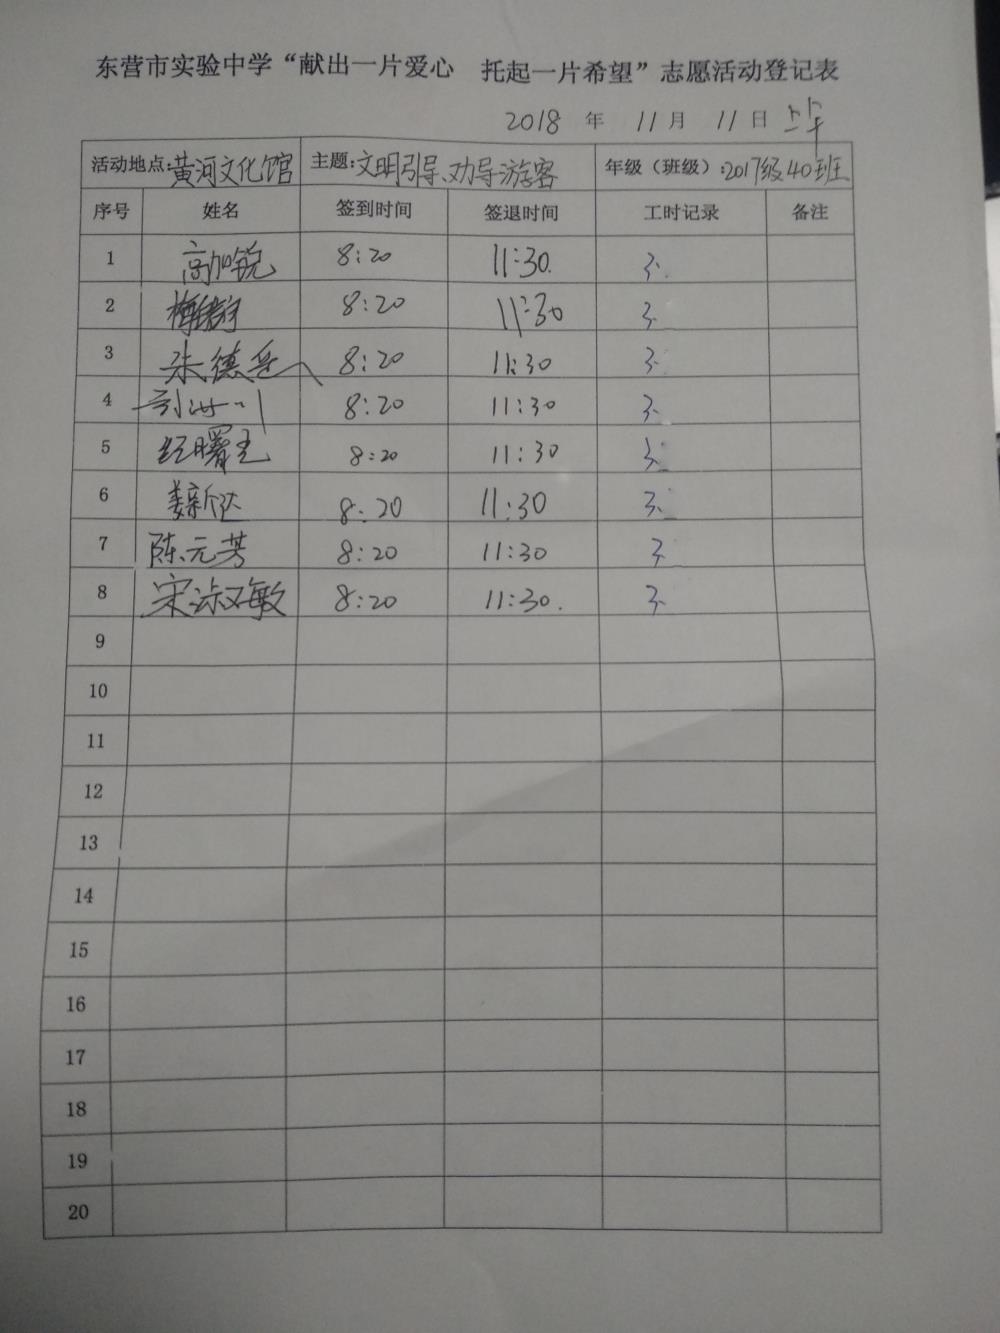 东营市实验中学“献出一片爱心 托起一片希望”志愿活动登记表
2018 年 11 月 11 日 上午
活动地点:黄河文化馆 主题:文明引导、劝导游客 年级（班级）:2017级40班
序号 姓名 签到时间 签退时间 工时记录 备注
1 高加锐 8:20 11:30. 3.
2 8:20 11:30 3.
3 朱德 8:20 11:30 3.
4 8:20 11:30 3.
5 8:20 11:30 3.
6 娄新达 8:20 11:30 3.
7 陈元芳 8:20 11:30 3.
8 宋淑敏 8:20 11:30. 3.
9
10
11
12
13
14
15
16
17
18
19
20